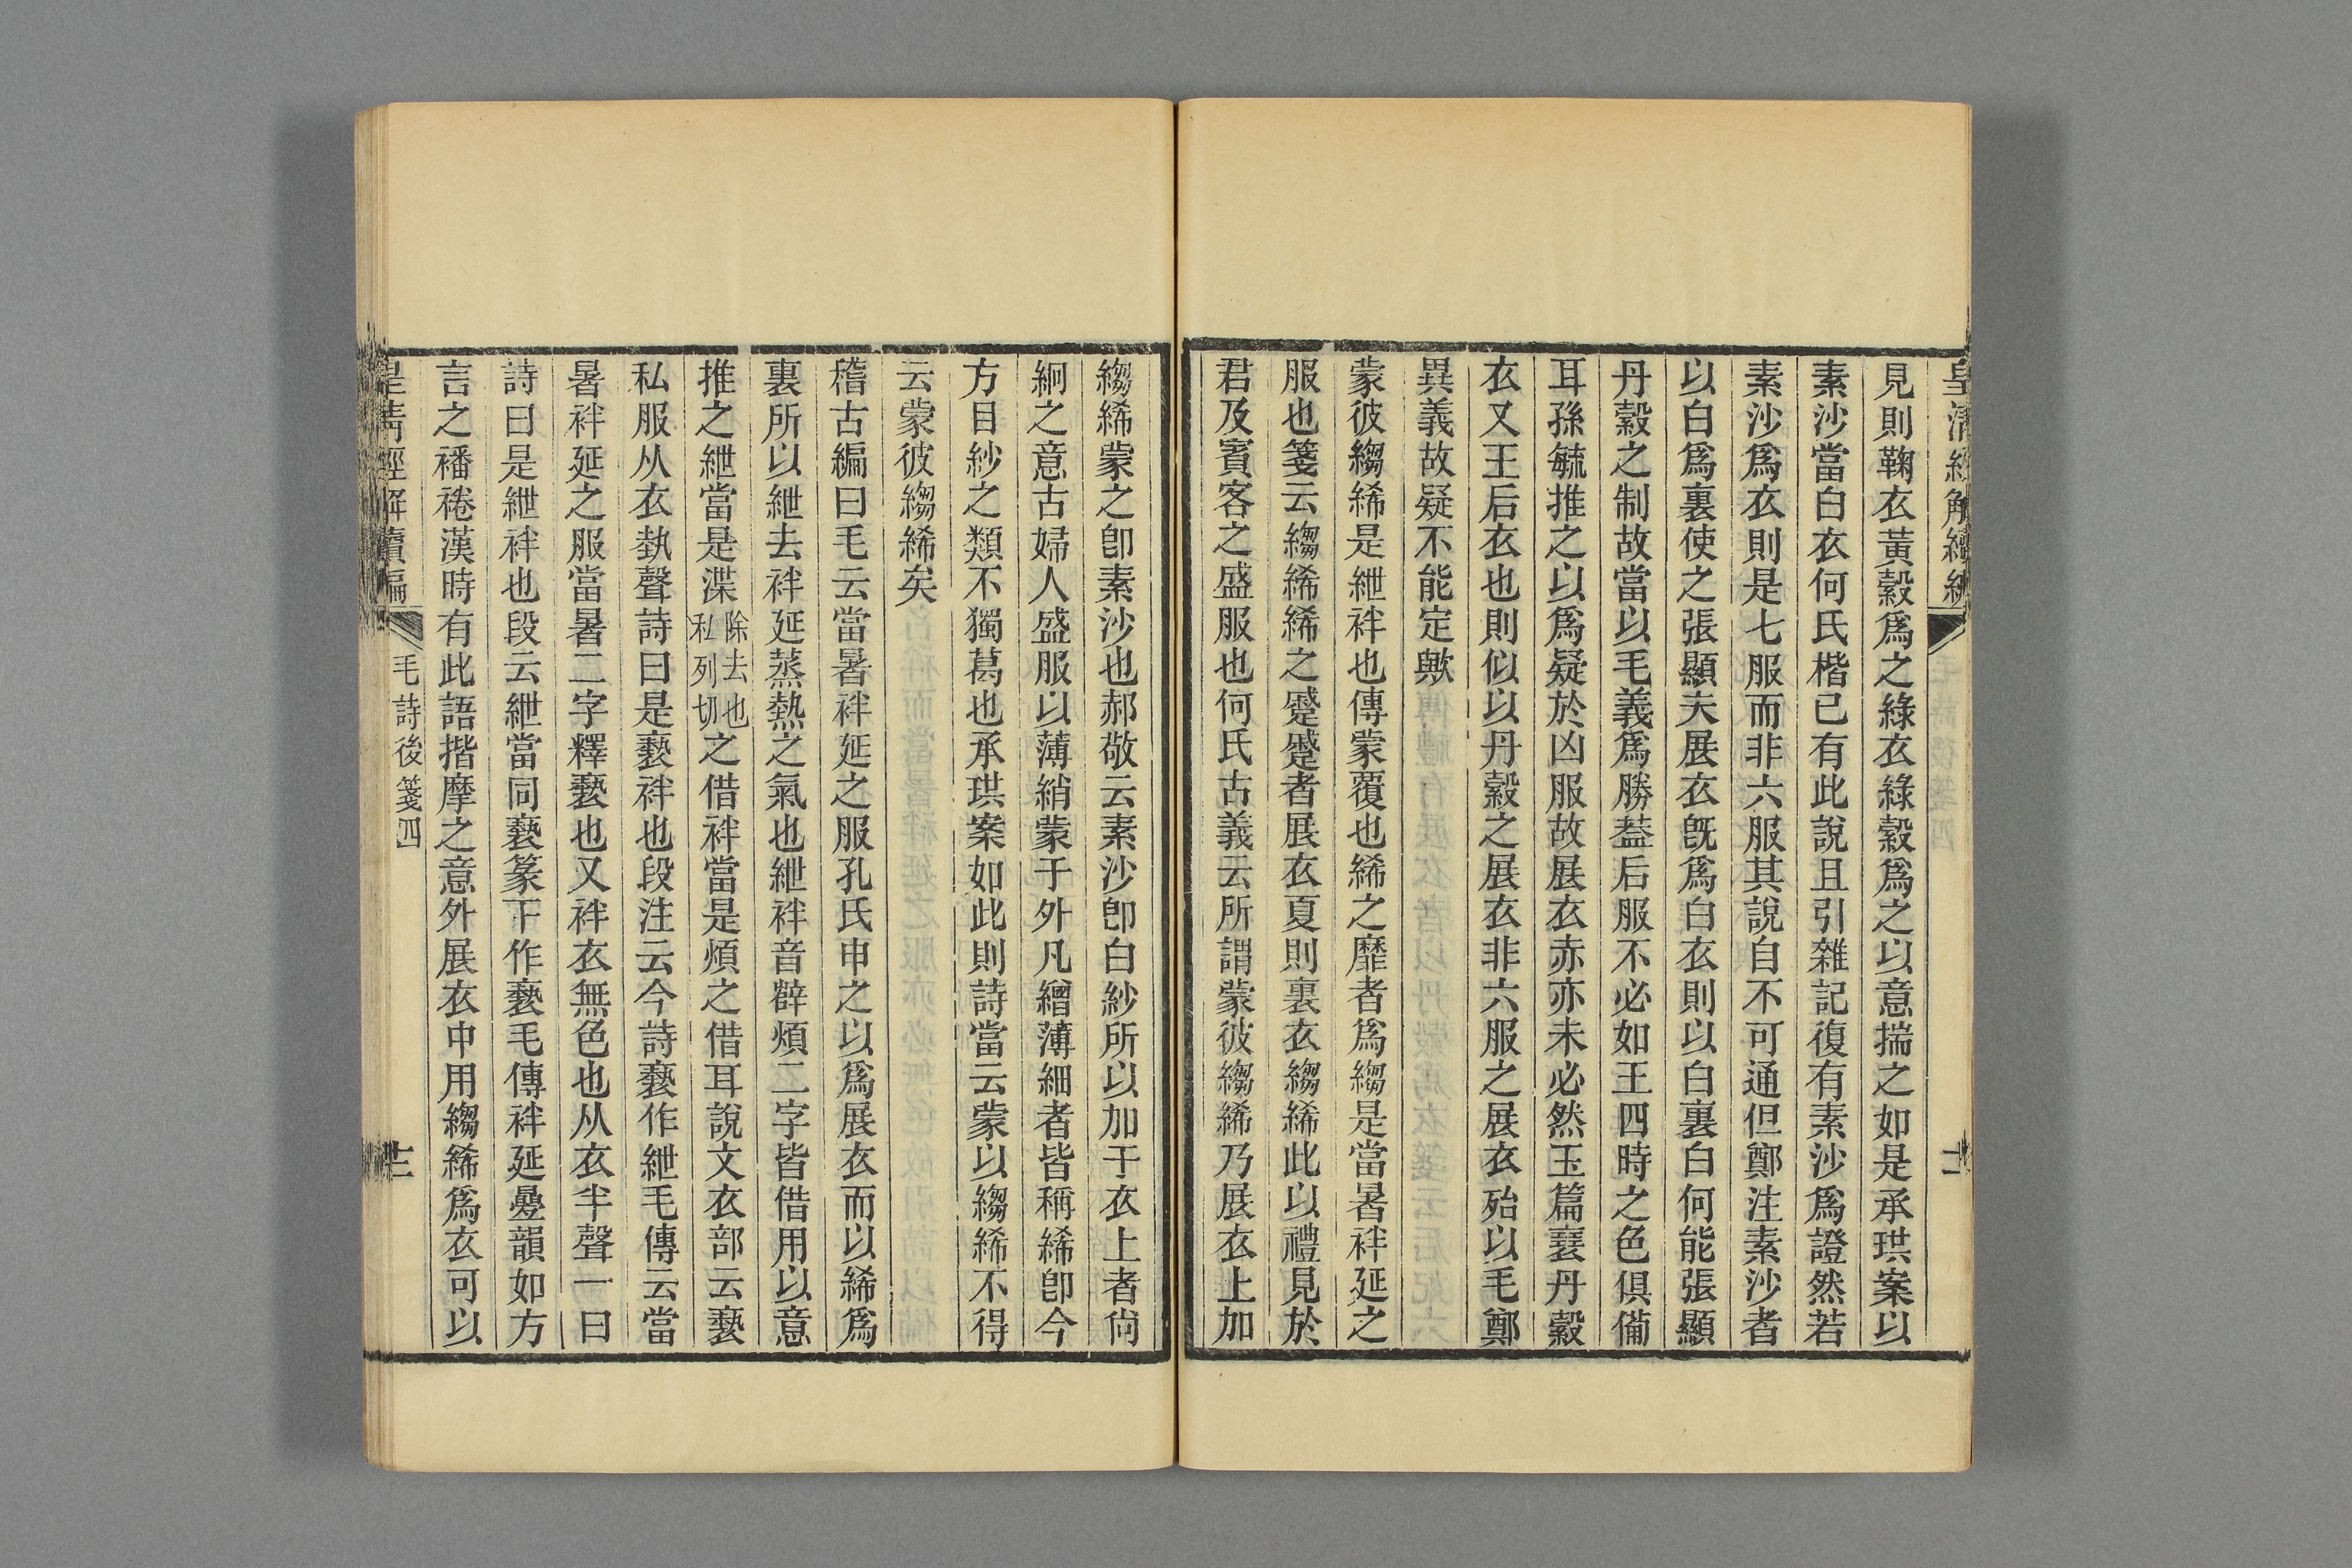 皇清經解續編
見則鞠衣黃縠爲之綠衣綠縠爲之以意揣之如是承珙案以
素沙當白衣何氏楷已有此說且引雜記復有素沙爲證然若
素沙爲衣則是七服而非六服其說自不可通但鄭注素沙者
以白爲裏使之張顯夫展衣旣爲白衣則以白裏白何能張顯
丹縠之制故當以毛義爲勝葢后服不必如王四時之色俱備
耳孫毓推之以爲疑於凶服故展衣赤亦未必然玉篇襄丹縠
衣又王后衣也則似以丹縠之展衣非六服之展衣殆以毛鄭
異義故疑不能定歟
蒙彼縐絺是紲袢也傳蒙覆也絺之靡者爲縐是當暑袢延之
服也箋云縐絺絺之蹙蹙者展衣夏則裏衣縐絺此以禮見於
君及賓客之盛服也何氏古義云所謂蒙彼縐絺乃展衣上加
縐絺蒙之卽素沙也郝敬云素沙卽白紗所以加于衣上者尙
絅之意古婦人盛服以薄綃蒙于外凡繒薄細者皆稱絺卽今
方目紗之類不獨葛也承珙案如此則詩當云蒙以縐絺不得
云蒙彼縐絺矣
稽古編曰毛云當暑袢延之服孔氏申之以爲展衣而以絺爲
裏所以紲去袢延蒸熱之氣也紲袢音辥煩二字皆借用以意
推之紲當是渫除去也私列切之借袢當是煩之借耳說文衣部云褻
私服从衣埶聲詩曰是褻袢也段注云今詩褻作紲毛傳云當
暑袢延之服當暑二字釋褻也又袢衣無色也从衣半聲一曰
詩曰是紲袢也段云紲當同褻篆下作褻毛傳袢延曡韻如方
言之襎裷漢時有此語揩摩之意外展衣中用縐絺爲衣可以
皇淸經解續編 毛詩後箋四 十二